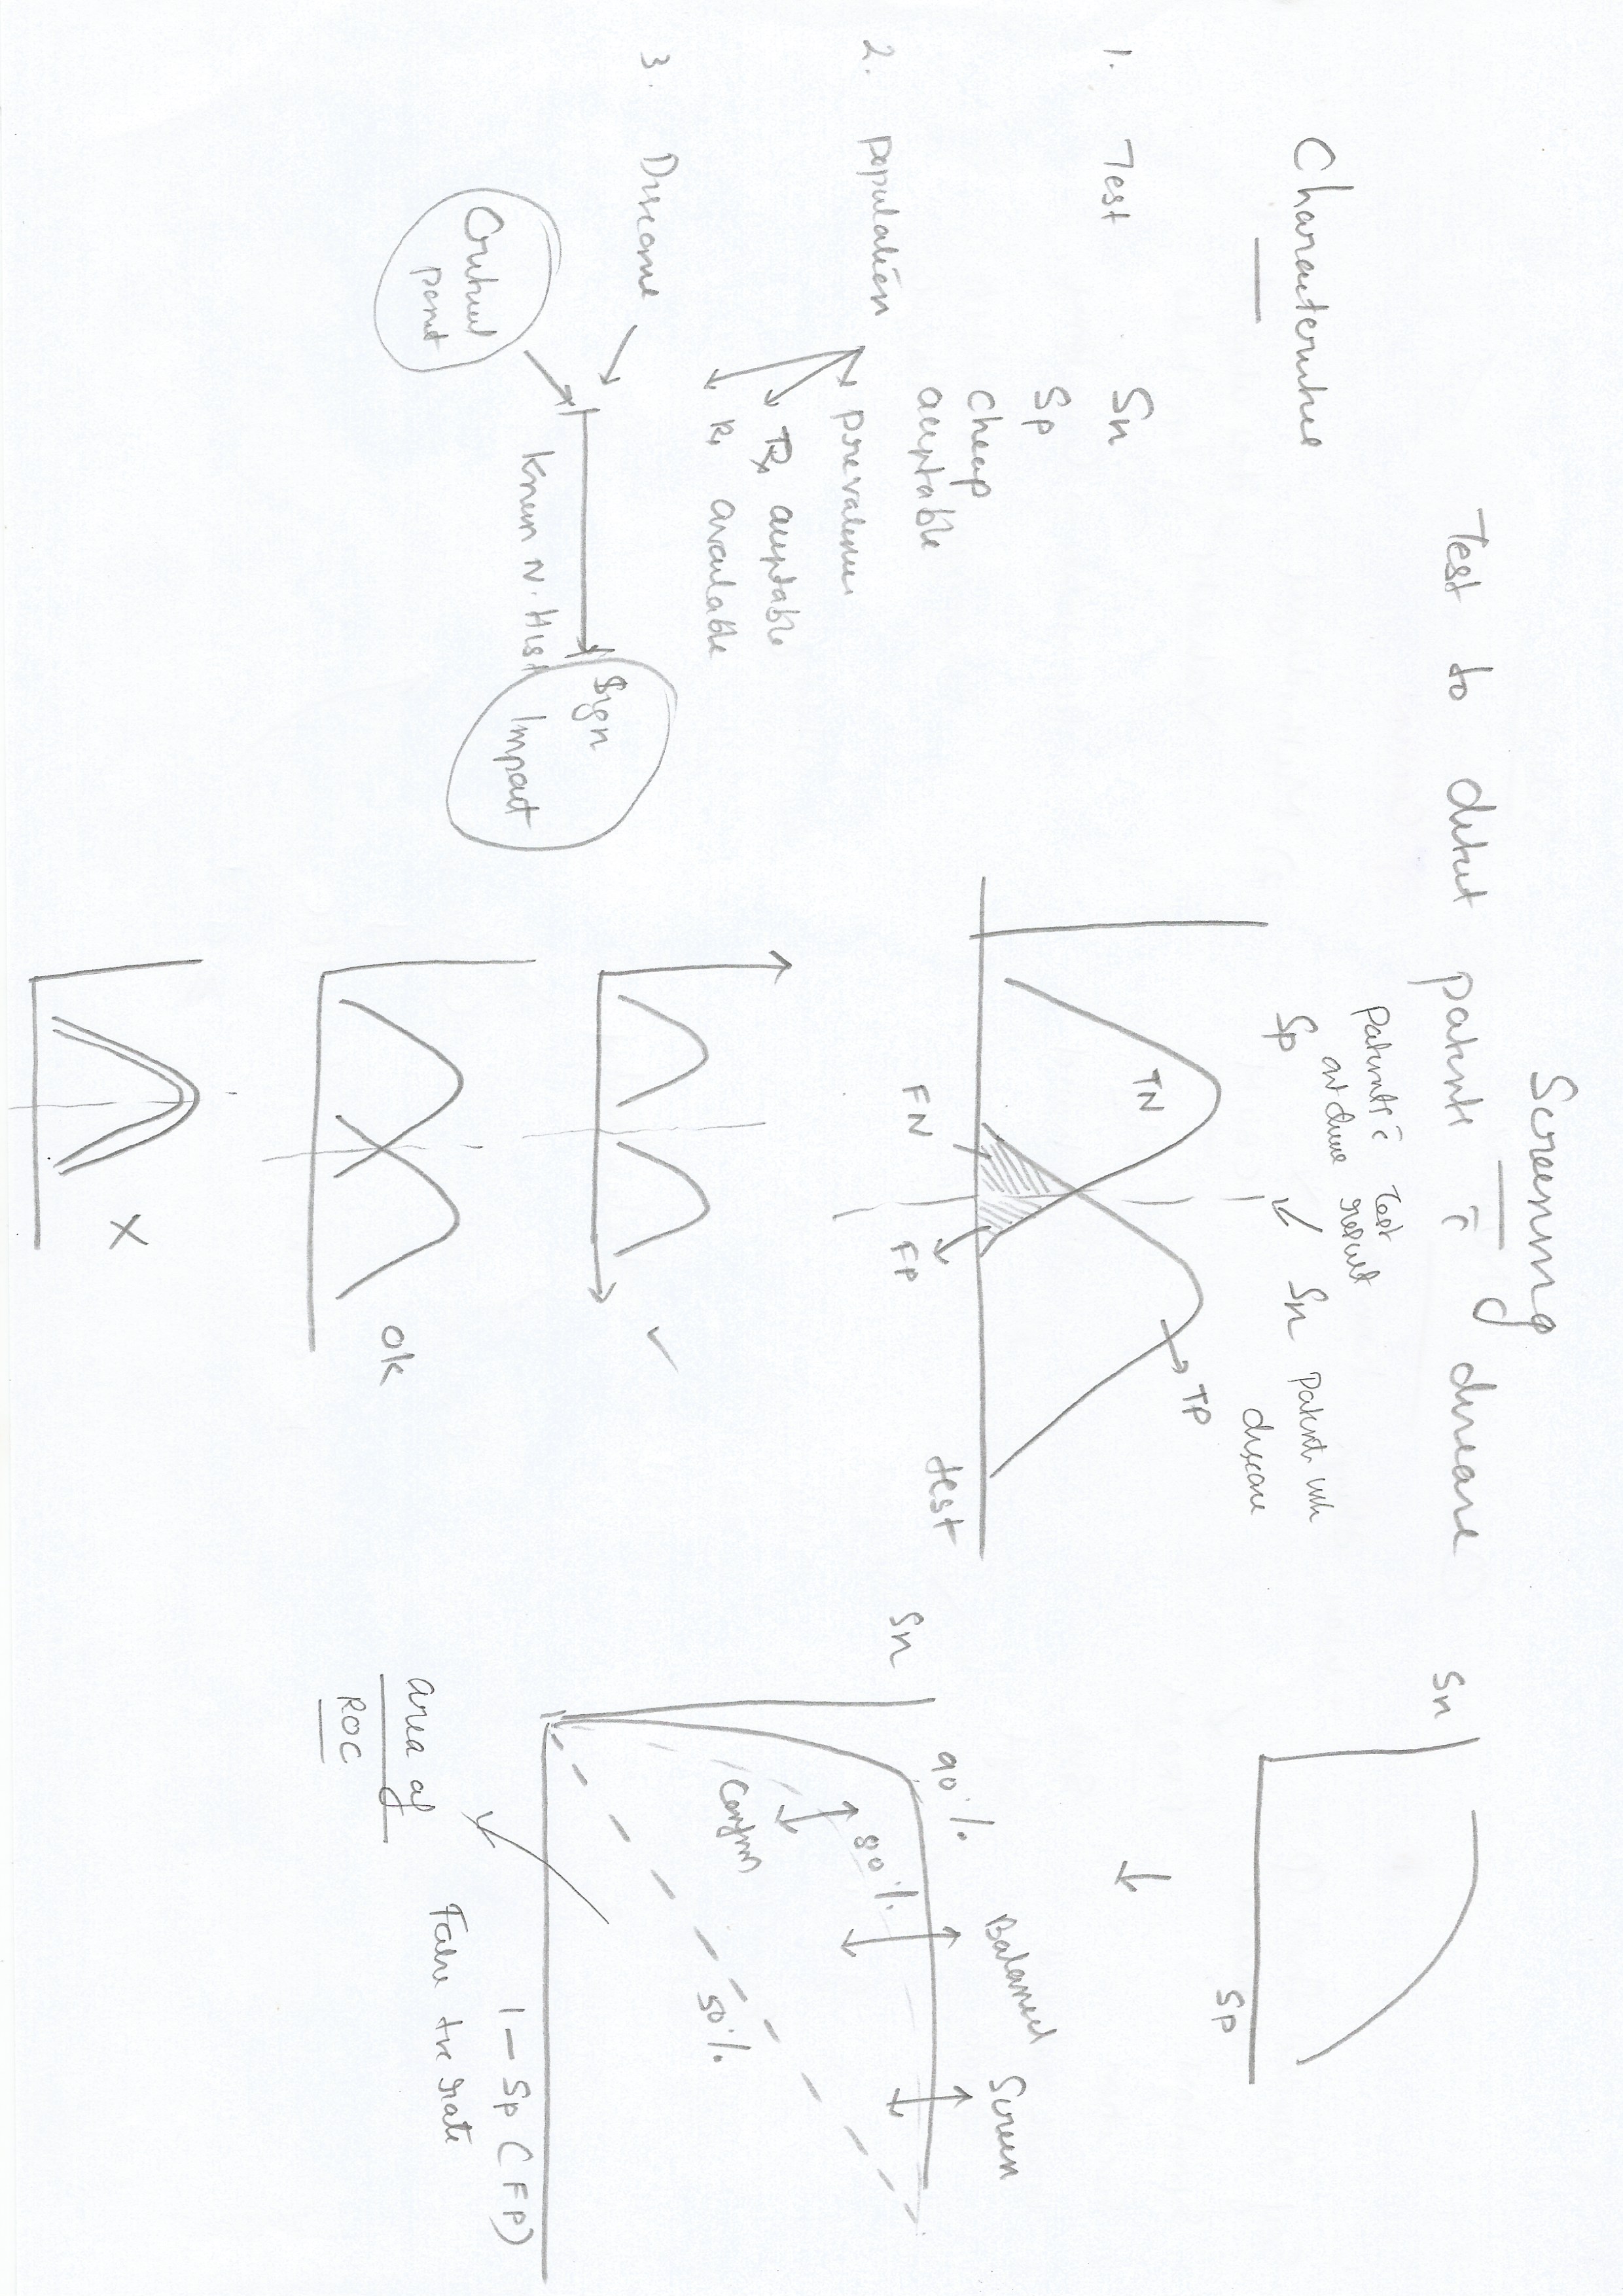 Screening
Test to detect patients c̄ disease
Characteristic
1. Test
Sn
Sp
cheap
acceptable
2. population
prevalence
Rx acceptable
Rx available
3. Disease
Critical
point
Known N. Hist
Sign
Impact
Patients c̄
out disease
Sp
Test
result
Sn
Patient with
disease
TN
TP
FN
FP
test
✓
ok
X
Sn
Sp
Sn
90%
80%
50%
Confirm
Balanced
Screen
1 - Sp (FP)
False +ve rate
area of
ROC